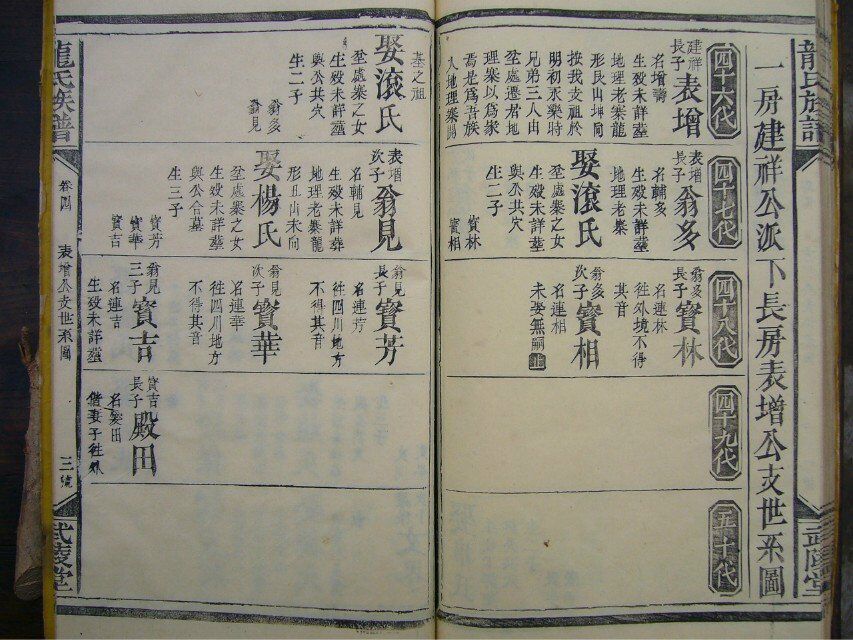 龍氏族譜
武陵堂
一房建祥公派下長房表增公支世系圖
四十六代
建祥
長子
表增
名增壽
生殁未詳塟
地理老寨龍
形艮山坤向
按我支祖於
明初永樂時
兄弟三人由
坌處遷居地
理寨以爲家
焉是爲吾族
入地理寨開
基之祖
娶滚氏
坌處寨之女
生殁未詳塟
與公共穴
生二子
翁多
翁見
四十七代
表增
長子
翁多
名輔多
生殁未詳塟
地理老寨
娶滚氏
坌處寨之女
生殁未詳塟
與公共穴
生二子
寳林
寳相
表增
次子
翁見
名輔見
生殁未詳葬
地理老寨龍
形丑山未向
娶楊氏
坌處寨之女
生殁未詳塟
與公合墓
生三子
寳芳
寳華
寳吉
四十八代
翁多
長子
寳林
名連林
徃外境不得
其音
翁多
次子
寳相
名連相
未娶無嗣
止
翁見
長子
寳芳
名連芳
徃四川地方
不得其音
翁見
次子
寳華
名連華
徃四川地方
不得其音
翁見
三子
寳吉
名連吉
生殁未詳塟
四十九代
寳吉
長子
殿田
偕妻子徃外
五十代
龍氏族譜
卷四
表增公支世系圖
三號
武陵堂